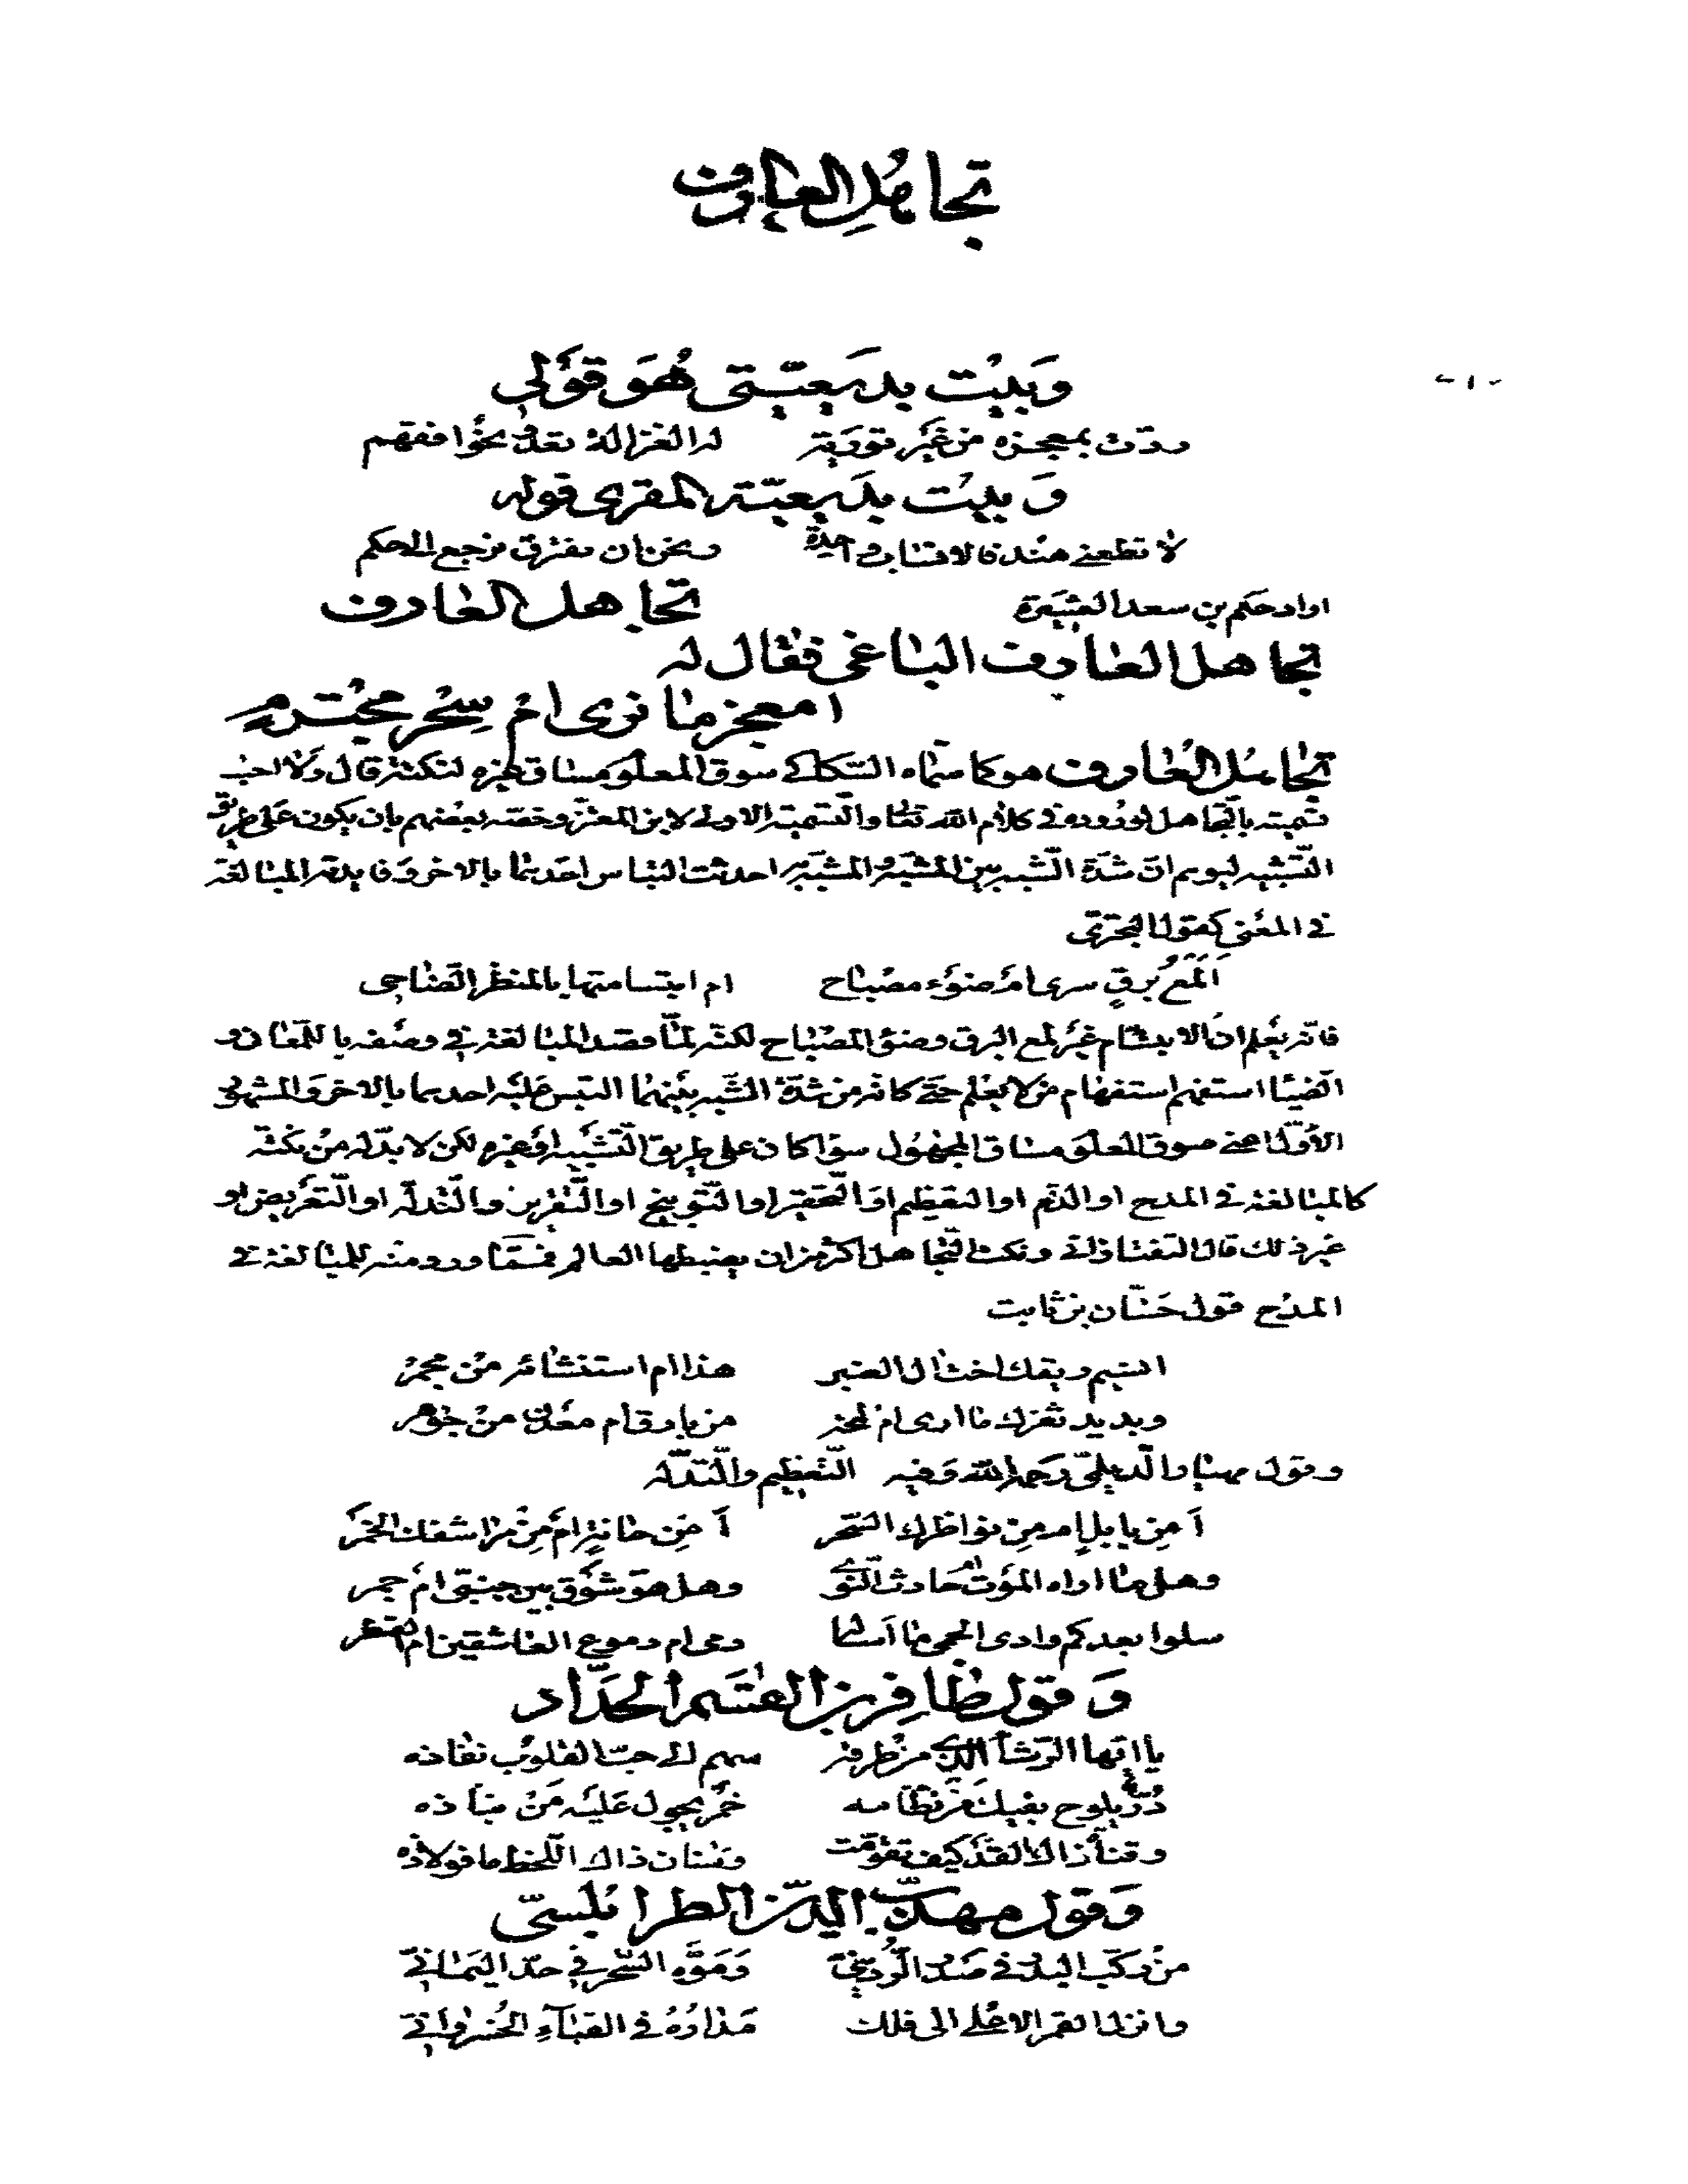 تجاهل العارف
وبيت بديعيتي هو قولي
- ١ -
ردت بمعجزه من غير تورية له الغزالة تعدو نحو افقهم
وبيت بديعية المقري قوله
لا تطعني هند فالانساب واحدة ونحن ان نفترق نرجع الى حكم
اراد حكم بن سعد العشيرة تجاهل العارف
تجاهل العارف الباغي فقال له
امعجز ما نرى ام سحر مجترم
تجاهل العارف هو كما سماه السكاكي سوق المعلوم مساق غيره لنكتة قال ولا احب
تسميته بالتجاهل لوروده في كلام الله تعالى والتسمية الاولى لابن المعتز وخصه بعضهم بان يكون على طريق
التشبيه ليوهم ان شدة الشبه بين المشبه والمشبه به احدثت التباس احدهما بالاخر وفايدته المبالغة
في المعنى كقول البحتري
المع برق سرى ام ضوء مصباح ام ابتسامتها بالمنظر الضاحي
فانه يعلم ان الابتسام غير لمع البرق وضوء المصباح لكنه لما قصد المبالغة في وصفه باللمعان و
الضيا استفهم استفهام من لا يعلم حتى كانه من شدة الشبه بينهما التبس عليه احدهما بالاخر والمشهور
الاول اعني سوق المعلوم مساق المجهول سوا كان على طريق التشبيه او غيره لكن لا بد له من نكتة
كالمبالغة في المدح او الذم او التعظيم او التحقير او التوبيخ او التقرير والتدله او التعريض او
غير ذلك قال التفتازاني ونكت التجاهل اكثر من ان يضبطها العالم فمما ورد منه للمبالغة في
المدح قول حسان بن ثابت
انسيم ريقك اخت ال العنبر هذا ام استنشاقة من مجمر
وبديد ثغرك ما ارى ام لمحة من بارق ام معدن من جوهر
وقول مهيار الديلمي رحمه الله وفيه التعظيم والتدله
أمن بابل ام من نواظرك السحر أمن حانة ام من مراشفك الخمر
وهل ما اراه الموت ام حادث النوى وهل هو شوق بين جنبي ام جمر
سلوا بعدكم وادي الحمى ما أساله دمي ام دموع العاشقين ام القطر
وقول ظافر بن القسم الحداد
يا ايها الرشأ الذي من طرفه سهم الى حب القلوب نفاذه
در يلوح بفيك من نظامه خمر يجول عليه من نباذه
وقناة ذاك القد كيف تقومت وسنان ذاك اللحظ ما فولاذه
وقول مهذب الدين الطرابلسي
من ركب البدر في صدر الرديني وموه السحر في حد اليماني
وانزل القمر الاعلى الى فلك مداره في القباء الخسرواني